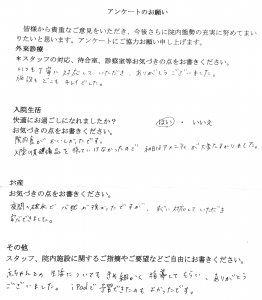 アンケートのお願い
皆様から貴重なご意見をいただき、今後さらに院内態勢の充実に努めてまい
りたいと思います。アンケートにご協力お願い申し上げます。
外来診療
*スタッフの対応、待合室、診察室等お気づきの点をお書きください。
いつも丁寧に対応していただき、ありがとうございました。
施設もどこもキレイでした。
入院生活
快適にお過ごしになれましたか? はい ・ いいえ
お気づきの点をお書きください。
院内食がおいしかったです。
お産
お気づきの点をお書きください。
夜間の破水で心配が
できました。
その他
スタッフ、院内施設に関するご指摘やご要望などご自由にお書きください。
赤ちゃんとの生活についてもきめ細かく指導してもらい、ありがとう
ございました。iPadで予習できたのもよかったです。